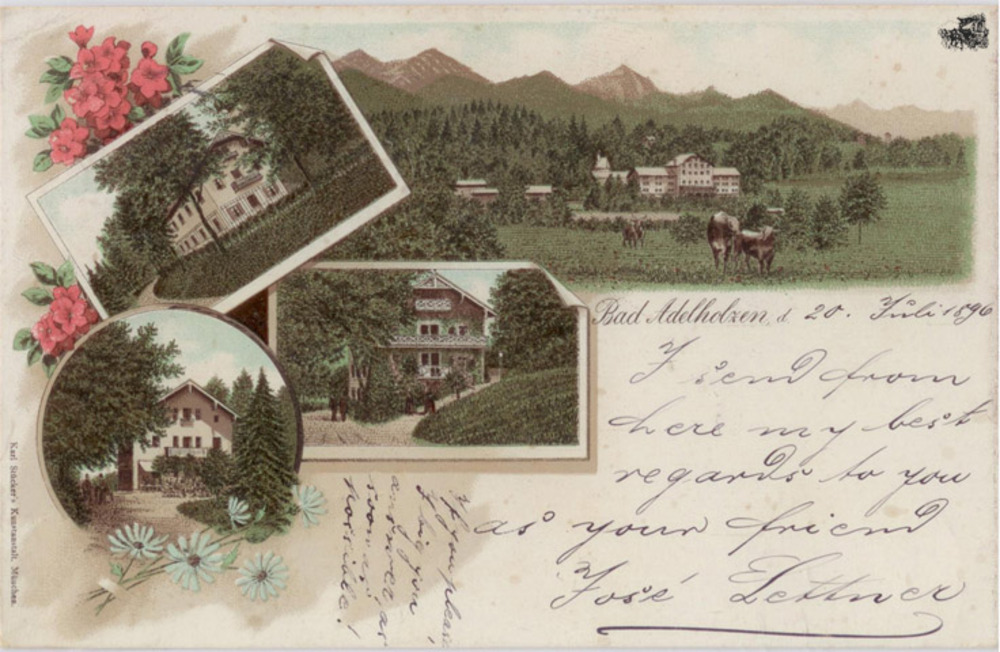 Bad Adelholzen, d. 20. Juli 1896
I send from
here my best
regards to you
as your friend
José Lettner
If you please,
I beg you
answer as
soon as
possible!
Karl Stücker's Kunstanstalt, München.